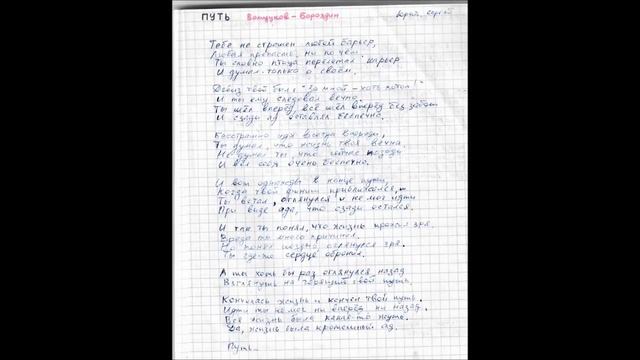 ПУТЬ Волщуков - Бороздин Юрий, Сергей
Тебе не страшен любой барьер,
Любая пропасть ни по чём
Ты словно птица перелетал карьер
И думал только о своём.
Девиз твой был: "За мной - хоть потоп!"
И ты ему следовал вечно.
Ты шёл вперёд, всё шёл вперёд без забот
И сзади ад оставлял беспечно.
Бесстрашно идя всегда вперёд,
Ты думал, что жизнь твоя вечна.
Не думал ты, что сейчас позади
И вёл себя очень беспечно.
И вот однажды в конце пути,
Когда твой финиш приближался,
Ты встал, оглянулся и не мог идти
При виде ада, что сзади остался.
И так ты понял, что жизнь прожил зря.
Вреда ты много причинил.
Но понял поздно, оглянулся зря.
Ты где-то сердце обронил.
А ты хоть бы раз оглянулся назад
Взглянуть на свой путь.
Кончилась жизнь и кончен твой путь.
Идти ты не мог ни вперёд ни назад.
Вся жизнь была какая-то жуть.
Да, жизнь была кромешный ад.
Путь...